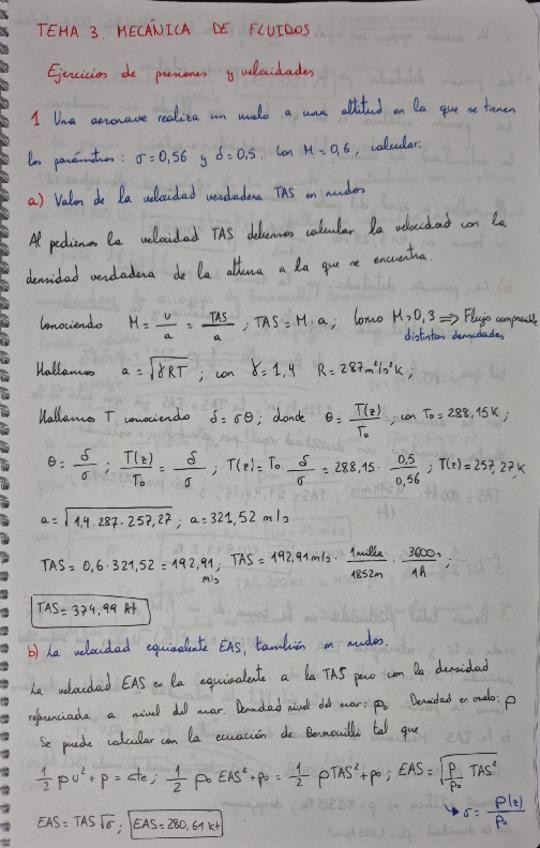 TEMA 3. MECÁNICA DE FLUIDOS.
Ejercicios de presiones y velocidades
1 Una aeronave realiza un vuelo a una altitud en la que se tienen
los parámetros: σ=0,56 y δ=0,5. Con M=0,6, calcular:
a) Valor de la velocidad verdadera TAS en nudos
Al pedirnos la velocidad TAS debemos calcular la velocidad con la
densidad verdadera de la altura a la que se encuentra.
Conociendo M = v/a = TAS/a ; TAS = M·a ; Como M>0,3 ⇒ Flujo compresible
distintas densidades
Hallamos a = √γRT ; con γ = 1,4 R = 287 m²/s²K ;
Hallamos T conociendo δ = σθ ; donde θ = T(z)/T₀ , con T₀ = 288,15K ;
θ = δ/σ ; T(z)/T₀ = δ/σ ; T(z) = T₀ δ/σ = 288,15 · 0,5/0,56 ; T(z) = 257,27K
a = √1,4·287·257,27 ; a = 321,52 m/s
TAS = 0,6·321,52 = 192,91 m/s ; TAS = 192,91 m/s · 1milla/1852m · 3600s/1h ;
TAS = 374,99 kt
b) La velocidad equivalente EAS, también en nudos.
La velocidad EAS es la equivalente a la TAS pero con la densidad
referenciada a nivel del mar. Densidad nivel del mar: ρ₀ Densidad en vuelo: ρ
Se puede calcular con la ecuación de Bernouilli tal que
1/2 ρv² + p = cte ; 1/2 ρ₀ EAS² + p₀ = 1/2 ρTAS² + p₀ ; EAS = √ρ/ρ₀ TAS²
↳ σ = ρ(z)/ρ₀
EAS = TAS√σ ; EAS = 280,61 kt